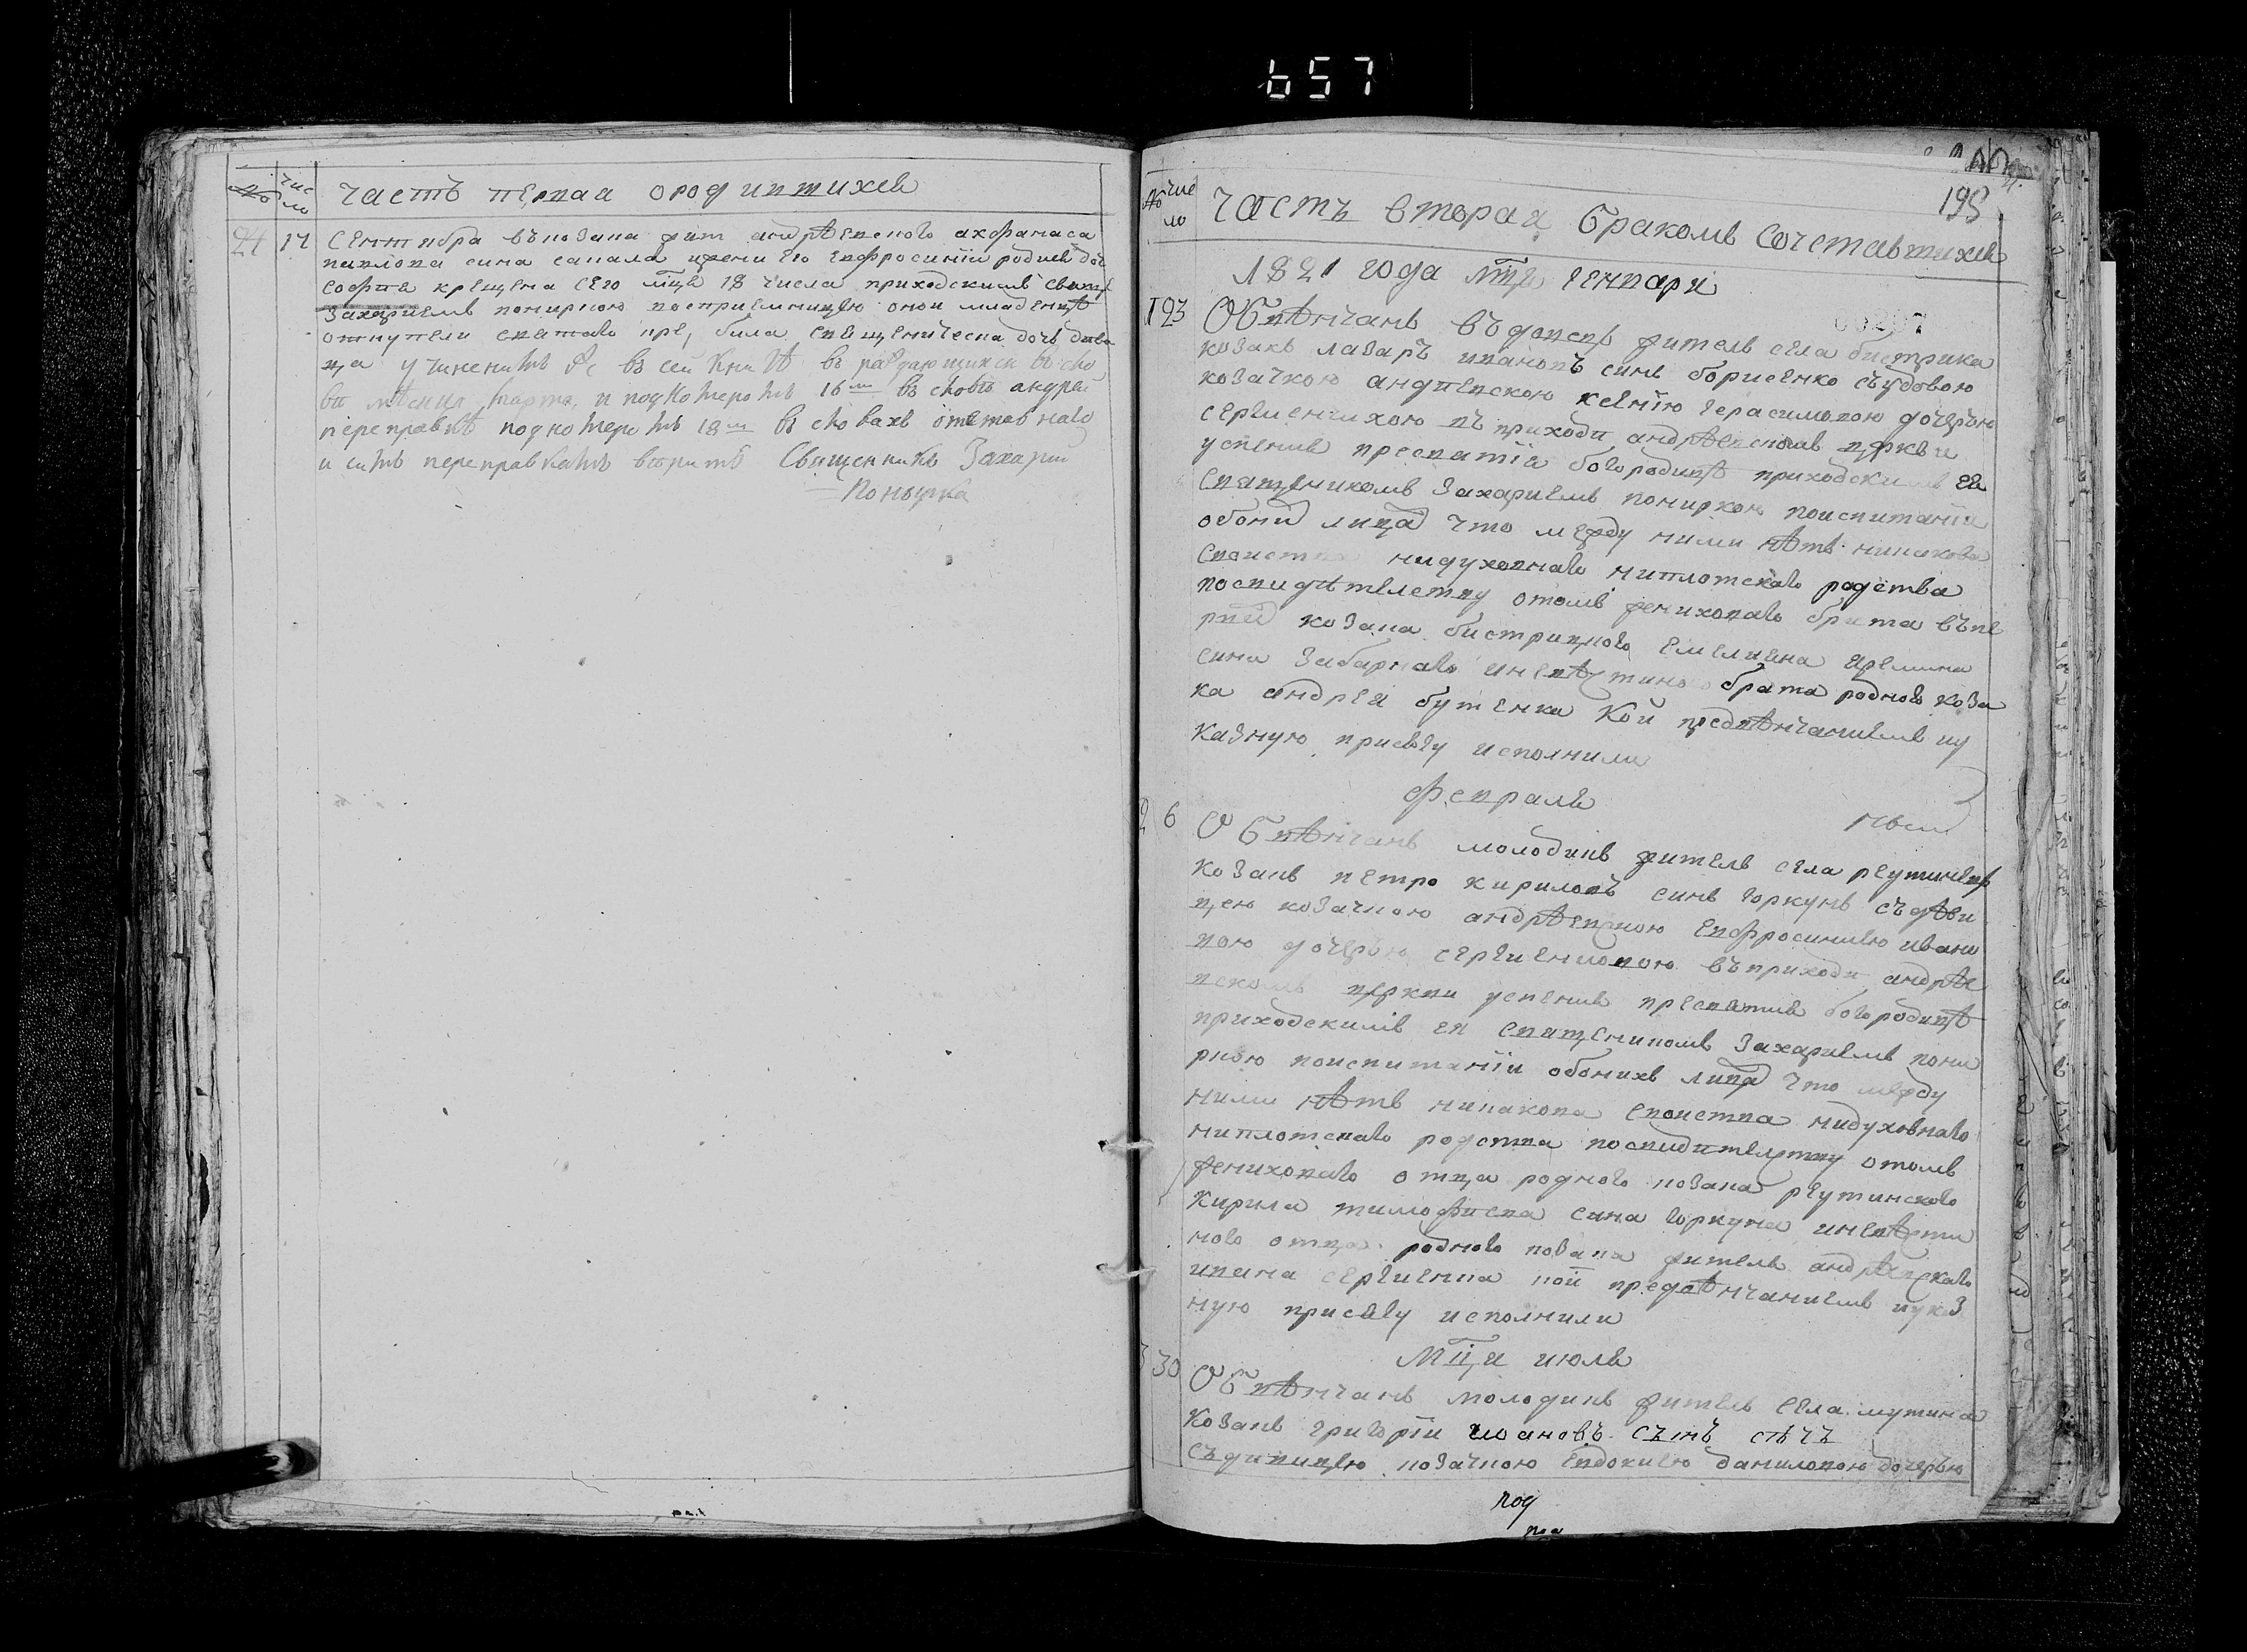 657
№ число часть первая о родившихся
24 17 Сентября въ козака жит андрѣевского ахфанаса
павлова сина сапала и жени его евфросинiи родися доч
софiя крещена сего мца 18 числа приходскимъ свящ
захарiемъ пониркою восприемницею онои младенца
била священическа дочь деви
ца учиненнимъ въ сеи книгѣ въ раждающихся въ сло
ве мѣсяця марта и подномеромъ 16м въ словѣ андрей
переправкѣ подномеромъ 18м въ словахъ отставнаго
и симъ переправкамъ вѣрить Священникъ Захарий
Понырка
195
№ число Часть вторая Бракомъ Сочетавшихся
1821 года мца генваря
1 23 Обвѣнчанъ въдовец житель села бистрика
козакъ лазаръ ивановъ синъ борисенко съ удовою
козачкою андреевскою ксенiею герасимовою дочерью
сергиенчихою въ приходи андрѣевскомъ церкви
успения пресвятiя богородицѣ приходскимъ ея
Священикомъ Захариемъ пониркою по испитанiи
обоих лицъ что между ними нѣтъ никакова
своиства ни духовнаго ни плотскаго родства
по свидителству о томъ женихового брата въ пе
рвий козака бистрицкого Емелияна Яремина
сина Забарнаго и невѣстиного брата родного коза
ка андрея бутенка кои предвѣнчаниемъ и у
казную присягу исполнили
Февраля
2 6 Обвѣнчанъ молодикъ житель села реутинец
козакъ петро кириловъ синъ горкунъ съ дѣви
цею козачкою андрѣевскою Евфросиниею ивано
вою дочерью сергиенковою въ приходи андрѣе
вскомъ церкви успения пресвятия богородицѣ
приходскимъ ея священикомъ Захариемъ пони
ркою по испитанiи обоихъ лицъ что между
ними нѣтъ никакова своиства ни духовнаго
ни плотскаго родства по свидителству о томъ
женихового отца родного козака реутинского
Кирила тимофиева сина горкуна и невѣсти
ного отца родного козака жителя андрѣевскаго
ивана сергиенка кои предвѣнчаниемъ и указ
ную присягу исполнили
Мца июля
3 30 Обвѣнчанъ молодикъ житель села мутина
Козакъ григорiи ивановъ сынъ сѣчъ
съ дивицею козачкою Евдокиею даниловою дочерью